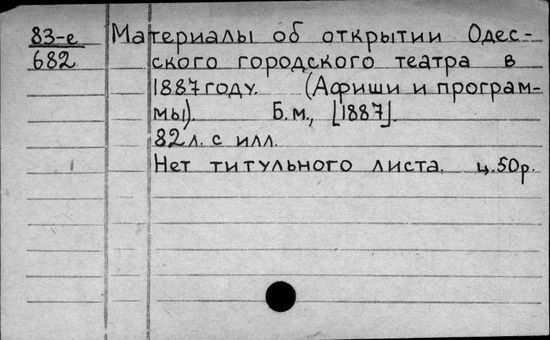 83-е Материалы об открытии Одес-
682 ского городского театра в
1887 году. (Афиши и програм-
мы). Б.м., [1887].
82 л. с илл.
Нет титульного листа. ц.50р.